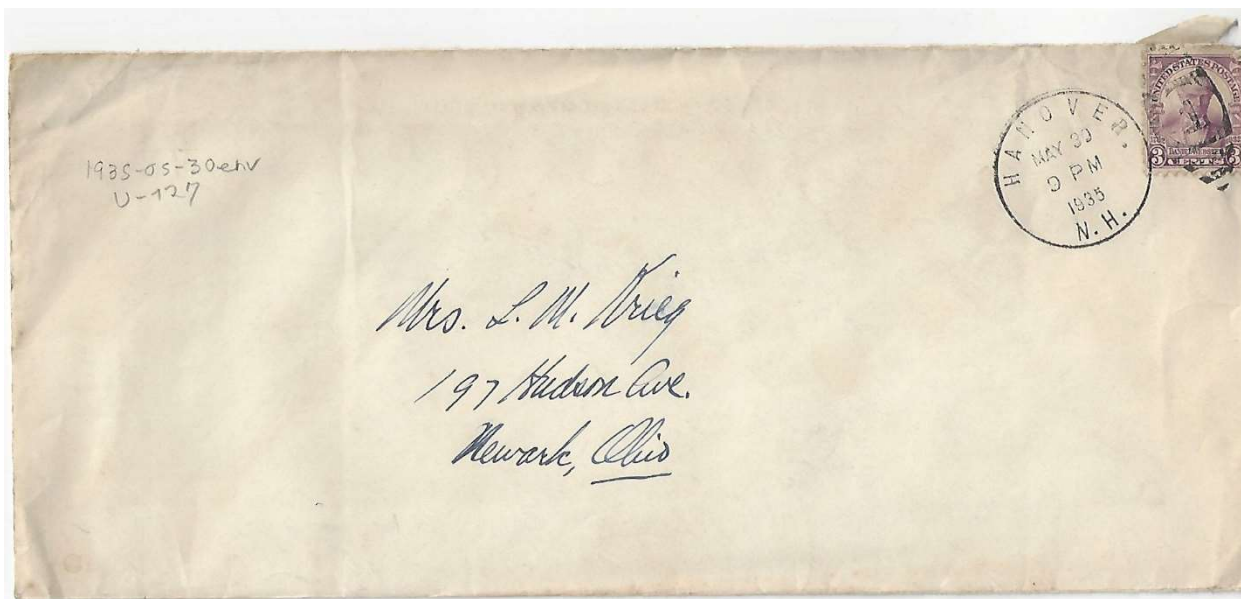 1935-05-30env
U-127
HANOVER.
MAY 30
9 PM
1935
N.H.
UNITED STATES POSTAGE
3 3
Mrs. L. M. Krieg
197 Hudson Ave.
Newark, Ohio